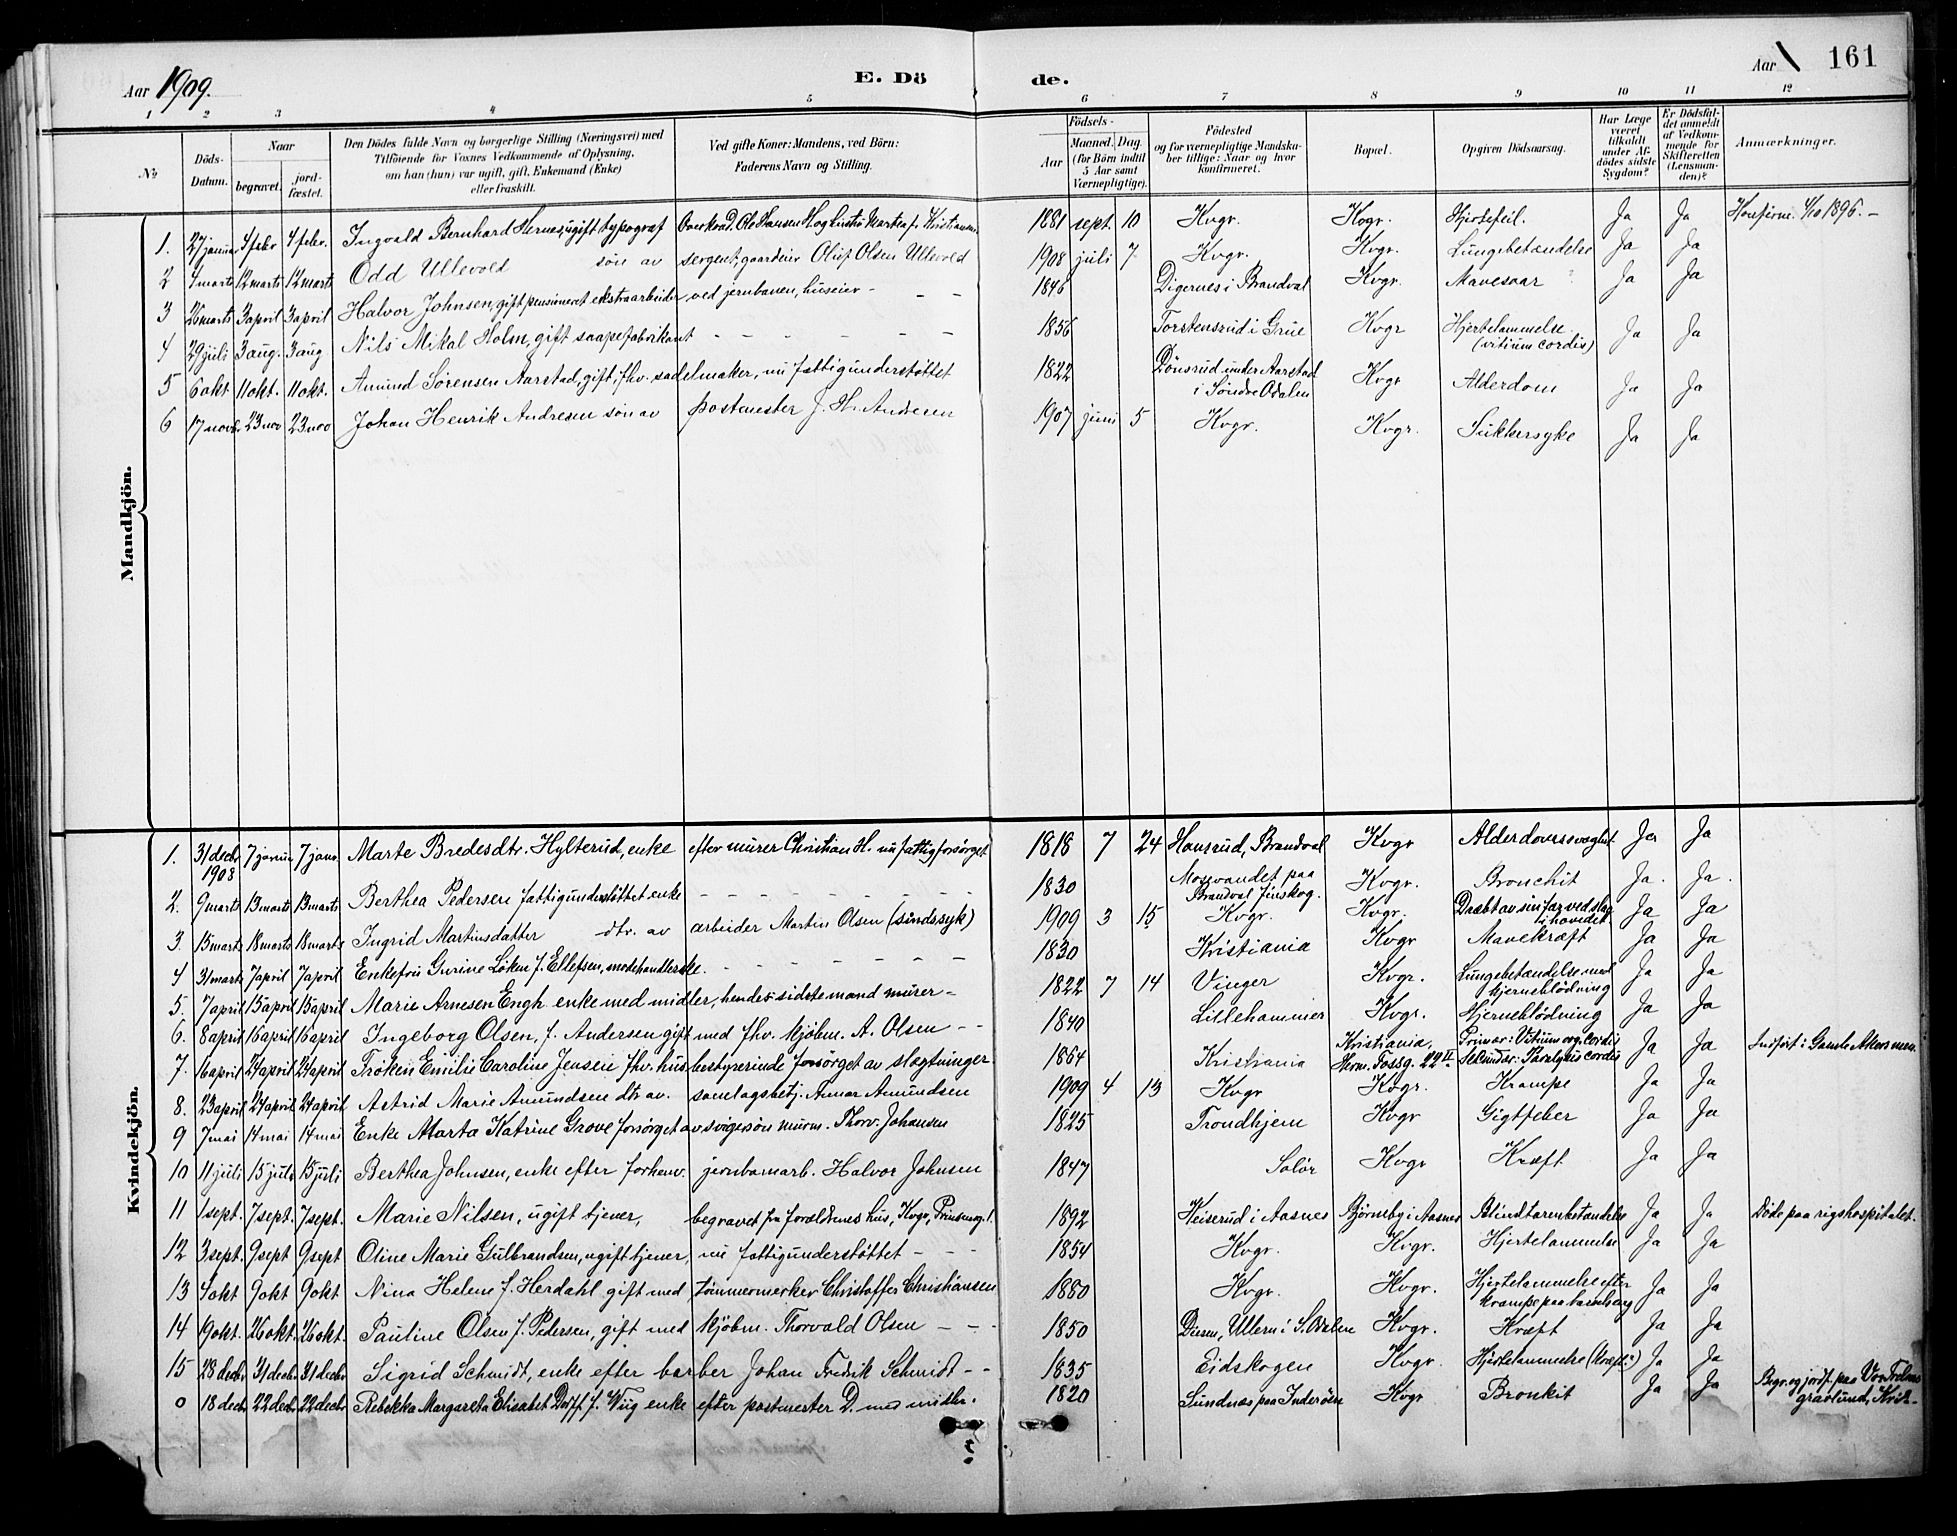 Aar 1909. E. Döde. Aar 161
1 2 3 4 5 6 7 8 9 10 11 12
No Döds-Datum. Naar begravet. jordfæstet. Den Dödes fulde Navn og borgerlige Stilling (Næringsvei) med Tilföiende for Voxnes Vedkommende af Oplysning, om han (hun) var ugift, gift, Enkemand (Enke) eller fraskilt. Ved gifte Koner: Mandens, ved Börn: Faderens Navn og Stilling. Födsels- Aar Maaned. Dag. (for Börn indtil 5 Aar samt Værnepligtige). Födested og for værnepligtige Mandskaber tillige: Naar og hvor konfirmeret. Bopæl. Opgiven Dödsaarsag. Har Læge været tilkaldt under Afdödes sidste Sygdom? Er Dödsfaldet anmeldt af Vedkommende for Skifteretten (Lensmanden)? Anmærkninger.
Mandkjön.
1. 27 januar 4 febr 4 febr. Ingvald Bernhard Hernes, ugift typograf 1881 sept. 10 Kvgr. Kvgr. Hjertefeil. Ja Ja Konfirm. 4/10 1896. –
2 4 marts 12 marts 12 marts Odd Ullevold søn av sergent, gaardeier Oluf Olsen Ullevold 1908 juli 7 Kvgr. Kvgr. Lungebetændelse Ja Ja
3 26 marts 3 april 3 april Halvor Johnsen, gift pensioneret ekstraarbeider ved jernbanen, huseier – – – 1846 Digernes i Brandval Kvgr. Mavesaar Ja Ja
4 29 juli 3 aug. 3 aug Nils Mikal Holm, gift saapefabrikant – – – – – 1856 Torstensrud i Grue Kvgr Hjertelammelse (vitium cordis) Ja Ja
5 6 okt 11 okt. 11 okt. Amund Sörensen Aarstad, gift, fhv. sadelmaker, nu fattigunderstøttet 1822 Dönsrud under Aarstad i Söndre Odalen Kvgr Alderdom Ja Ja
6 17 novbr 23 nov 23 nov Johan Henrik Andresen søn av postmester J. H. Andresen 1907 juni 5 Kvgr. Kvgr. Sukkersyke Ja Ja
Kvindekjön.
1. 31 decb 1908 7 januar 7 janr. Marte Bredesdtr. Hylterud, enke efter murer Christian H. nu fattigforsørget 1818 7 24 Hansrud, Brandval Kvgr Alderdomssvaghet Ja Ja
2. 9 marts 13 marts 13 marts Berthea Pedersen fattigunderstøttet enke – – – – – 1830 Mosevandet paa Brandval Finskog. Kvgr. Bronchit Ja. Ja.
3. 15 marts 18 marts 18 marts Ingrid Martinsdatter dtr. av arbeider Martin Olsen (sindssyk) 1909 3 15 Kvgr. Kvgr. Dræbt av sin far ved slag i hovedet Ja Ja
4 31 marts 7 april 7 april Enkefru Gurine Løken f. Ellefsen, modehandlerske. – – – – – 1830 Kristiania Kvgr Mavekræft Ja Ja
5. 7 april 15 april 15 april Marie Arnesen Engh enke med midler, hendes sidste mand murer – 1822 7 14 Vinger Kvgr. Lungebetændelse med hjerneblödning Ja Ja
6. 8 april 16 april 16 april Ingeborg Olsen, f. Andersen gift med fhv. kjøbm. A. Olsen – – 1840 Lillehammer Kvgr. Hjerneblödning Ja Ja
7. 16 april 24 april 24 april Frøken Emilie Caroline Jensen fhv. husbestyrerinde forsørget av slægtninger 1864 Kristiania Kristiania, Herm. Fossg. 22 II. Primær: Vitium org. cordis Sekundær: Paralysis cordis Ja Ja Indført i Gamle Akers men.
8. 23 april 24 april 24 april Astrid Marie Amundsen dtr. av. sanelagsbetj. Annar Amundsen 1909 4 13 Kvgr Kvgr. Krampe Ja Ja
9 7 mai 14 mai 14 mai Enke Marta Katrine Grove forsørget av svigersøn murm. Thorv. Johansen 1825 Trondhjem Kvgr Gigtfeber Ja Ja
10 11 juli 15 juli 15 juli Berthea Johnsen, enke efter forhenv. jernbanearb. Halvor Johnsen 1847 Solør Kvgr Kræft Ja Ja
11 1 sept. 7 sept. 7 sept. Marie Nilsen, ugift tjener, begravet fra forældrenes hus, Kvgr, Prinsensg. 1. 1892 Keiserud i Aasnes Bjørneby i Aasnes Blindtarmbetændelse Ja Ja Døde paa rigshospitalet.
12 3 sept. 9 sept 9 sept Oline Marie Gulbrandsen, ugift tjener, nu fattigunderstøttet – – – 1854 Kvgr. Kvgr. Hjertelammelse Ja Ja
13 4 okt 9 okt 9 okt Nina Helene f. Herdahl gift med tømmermerker Christoffer Christiansen 1880 Kvgr. Kvgr. Hjertelammelse efter krampe paa barselseng Ja Ja
14 19 okt. 26 okt. 26 okt. Pauline Olsen f. Pedersen, gift med kjøbm. Thorvald Olsen – – – 1850 Disen, Ullern i S. Odalen Kvgr. Kræft Ja Ja
15 28 decbr 31 decbr 31 decbr Sigrid Schmidt, enke efter barber Johan Fredrik Schmidt – – 1835 Eidskogen Kvgr. Hjertelammelse (kræft?) Ja Ja
0 18 decbr. 22 decbr. 22 decbr. Rebekka Margareta Elisabet Dorff f. Wiig enke efter postmester D. med midler. 1820 Sundnes paa Inderøen Kvgr Bronkit Ja Ja Begr. og jordf. paa Vor Frelsers gravlund, Krist.